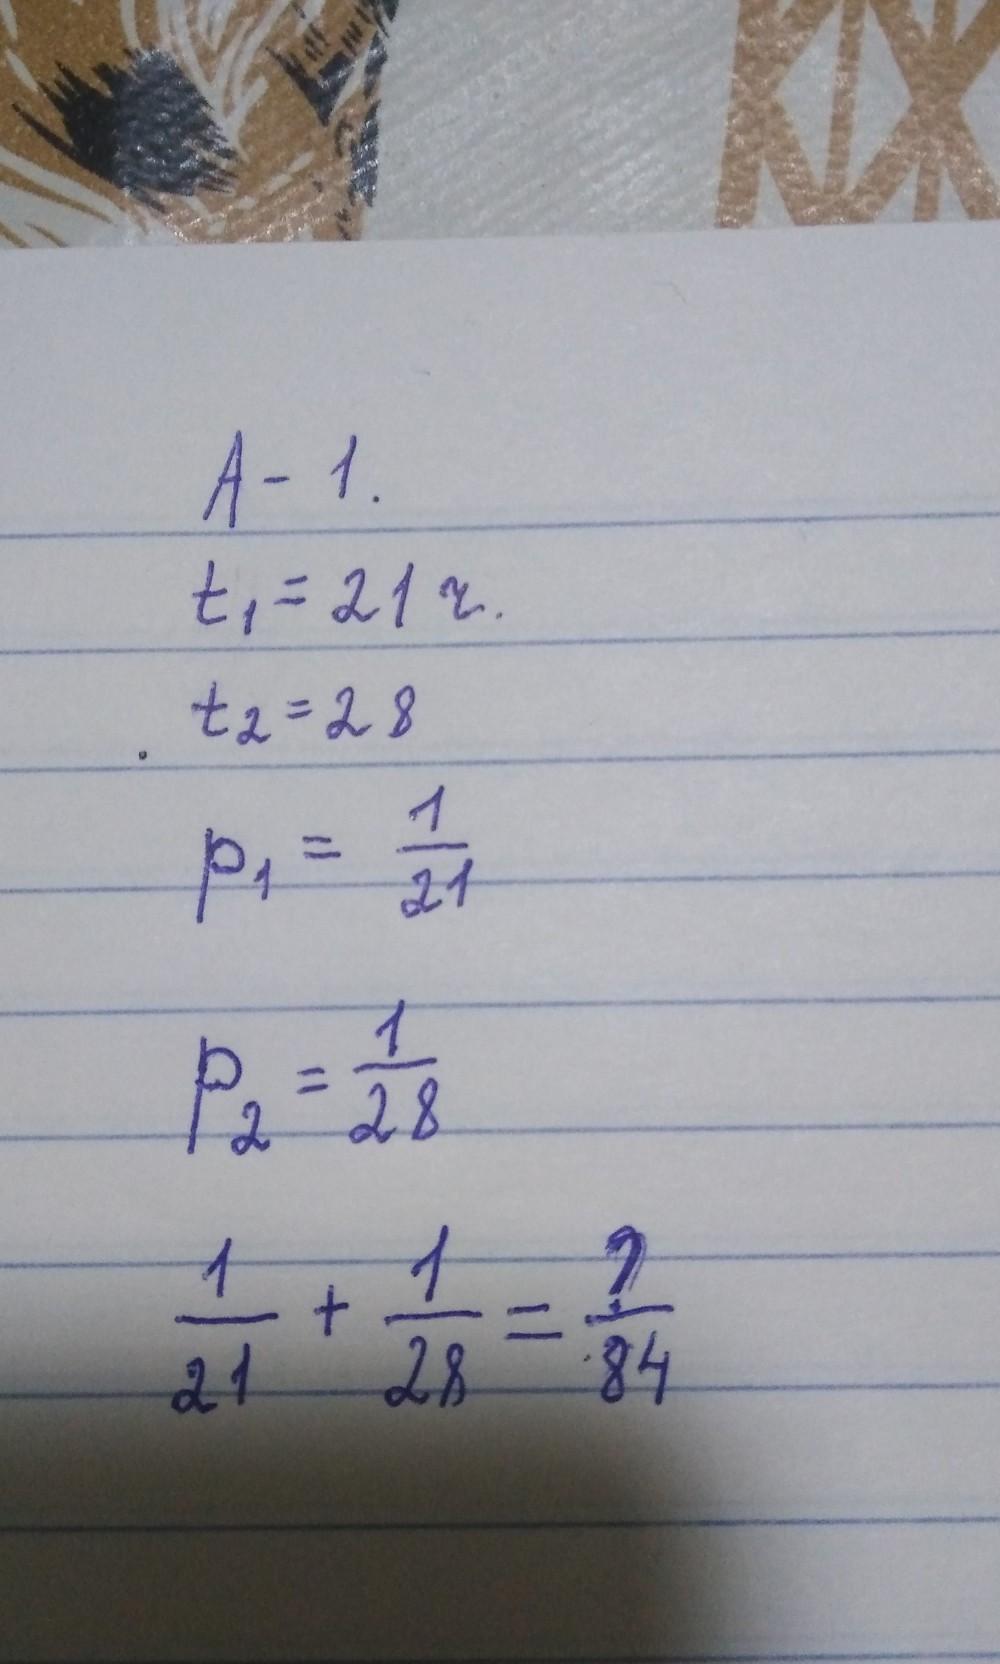 A - 1.
t₁ = 21 ч.
t₂ = 28
p₁ = 1/21
p₂ = 1/28
1/21 + 1/28 = ?/84